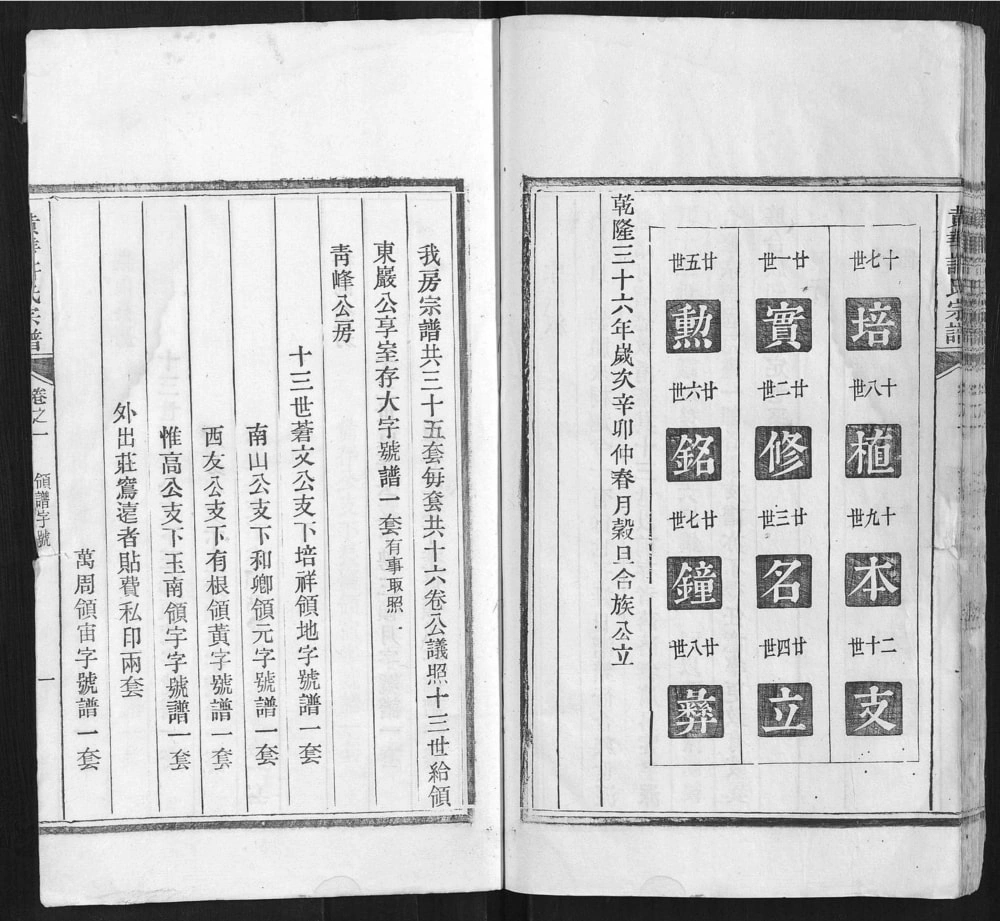 十七世
培
十八世
植
十九世
本
二十世
支
廿一世
實
廿二世
修
廿三世
名
廿四世
立
廿五世
勲
廿六世
銘
廿七世
鐘
廿八世
彝
乾隆三十六年歲次辛卯仲春月穀旦合族公立
我房宗譜共三十五套每套共十六卷公議照十三世給領
東巖公享室存大字號譜一套有事取照
青峰公房
十三世蒼文公支下培祥領地字號譜一套
南山公支下和卿領元字號譜一套
西友公支下有根領黃字號譜一套
惟高公支下玉南領宇字號譜一套
外出莊窵遠者貼費私印兩套
萬周領宙字號譜一套
氏宗譜
卷之一
領譜字號
一